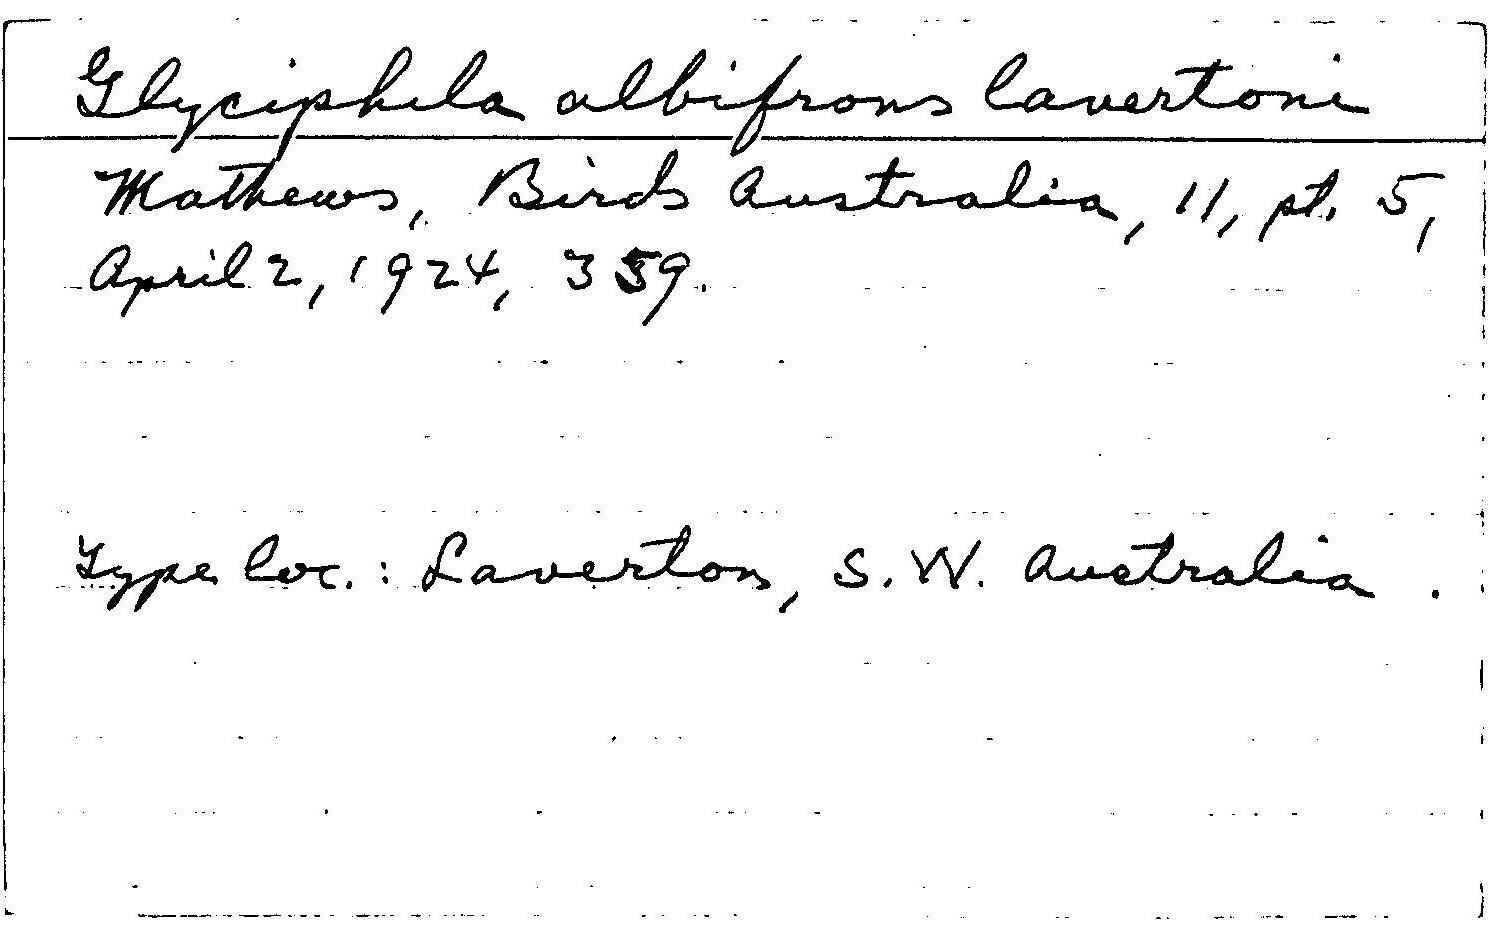 Glyciphila albifrons lavertoni
Mathews, Birds Australia, 11, pt. 5,
April 2, 1924, 359.
Type loc.: Laverton, S. W. Australia.